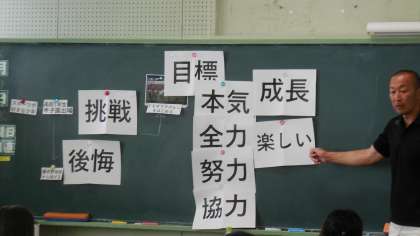 目標
挑戦
本気
成長
全力
楽しい
後悔
努力
協力